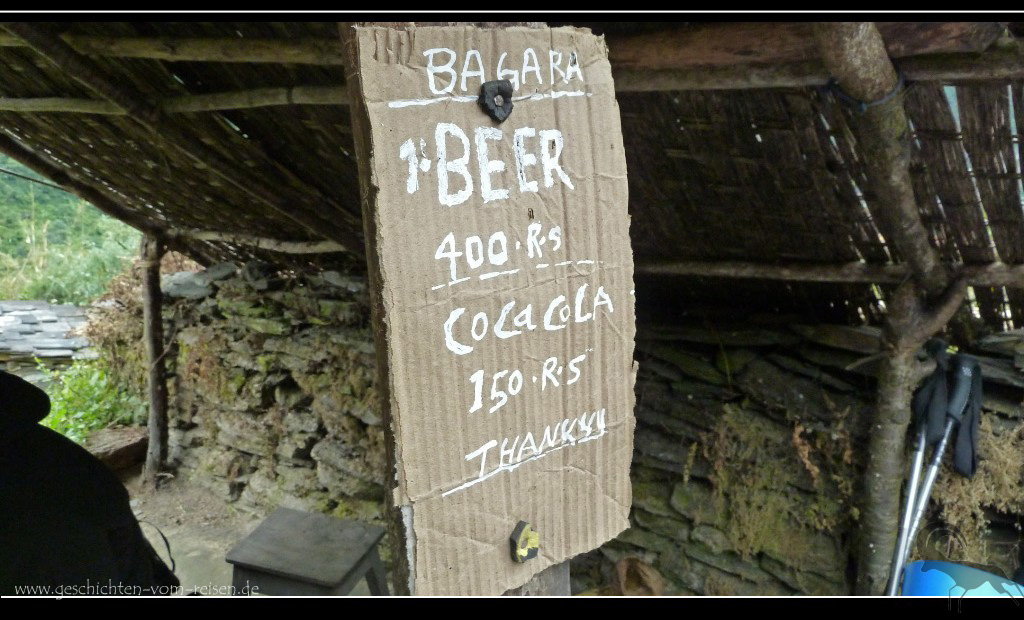 BAGARA
1·BEER
400·R·s
COCACOLA
150·R·S
THANKYU
www.geschichten-vom-reisen.de